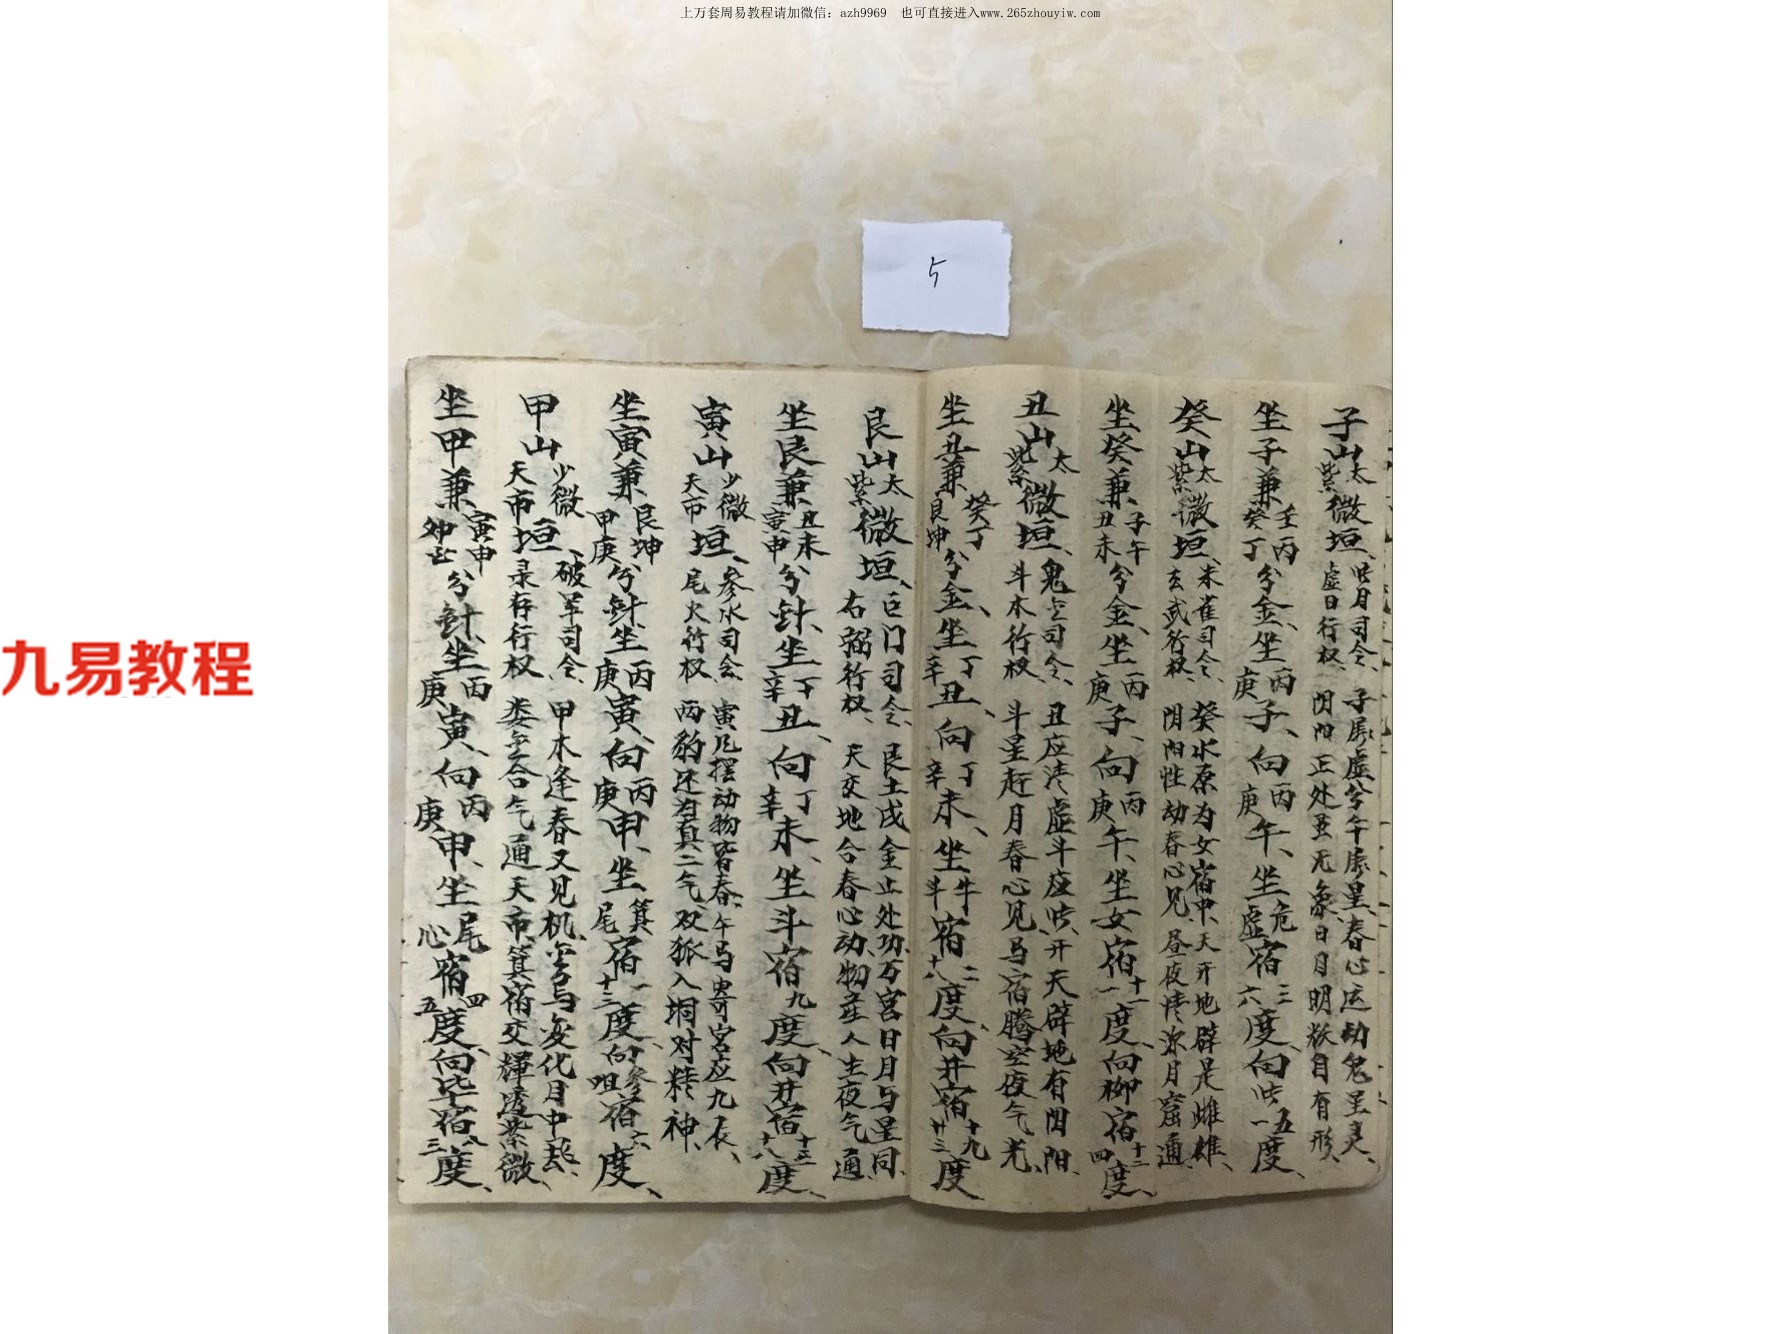 上万套周易教程请加微信：azh9969 也可直接进入www.265zhouyiw.com
5
九易教程
子山太紫微垣、
虚日行权、
子属虚兮午属星、春心运动鬼呈灵、
阴阳正处虽无象、日月明㪽自有形、
坐子兼壬丙癸丁兮金、坐丙庚子、向丙庚午、坐危虚宿三六度、向
五一度、
癸山太紫微垣、朱雀司令、玄武行权、
癸水原为女宿中、天开地辟是雌雄、
阴阳性动春心见、昼夜情浓月窟通、
坐癸兼子午丑未兮金、坐丙庚子、向丙庚午、坐女宿十一一度、向柳宿十二四度、
丑山太紫微垣、鬼金司令、斗木行权、
开天辟地有阴阳、
斗星赶月春心见、马宿腾空夜气光、
坐丑兼癸丁艮坤兮金、坐丁辛丑、向丁辛未、坐牛斗宿二十八度、向井宿十九廿三度
艮山太紫微垣、巨门司令、右弼行权、
艮土戊金止处功、万宫日月与星同、
天交地合春心动、物产人生夜气通、
坐艮兼丑未寅申兮针、坐丁辛丑、向丁辛未、坐斗宿九度、向井宿十三十八度、
寅山少微天市垣、参水司令、尾火行权
寅凡摆动物皆春、午马寄宫应九辰、
两豹还当真二气、双狐入垌对精神、
坐寅兼艮坤甲庚兮针坐丙庚寅、向丙庚申、坐箕尾宿一十三度、向参咀宿六度、
甲山少微天市垣、破军司令、录存行权
甲木逢春又见机、
娄金合气通天市、箕宿交辉透紫微
坐甲兼寅申卯酉兮针、坐丙庚寅、向丙庚申、坐尾心宿四五度、向毕宿八三度、